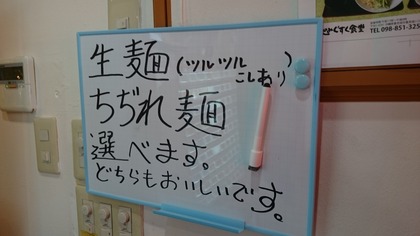 生麺(ツルツル
こしあり)
ちぢれ麺
選べます。
どちらもおいしいです。
TEL 098-851-325